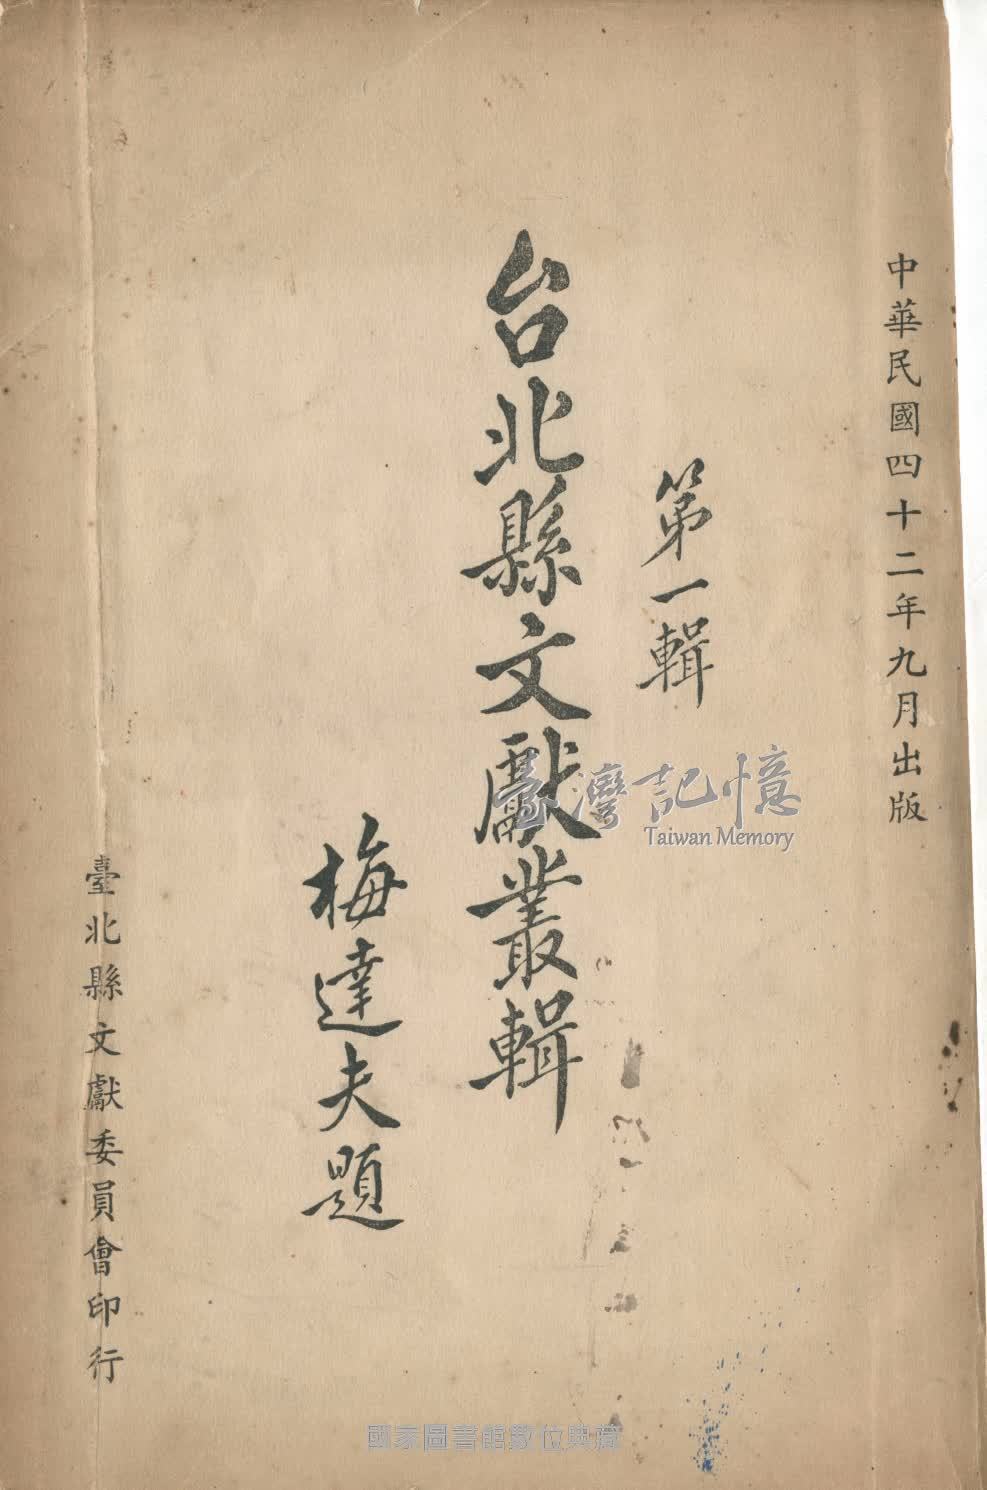 中華民國四十二年九月出版
第一輯
台北縣文獻叢輯
梅達夫題
臺北縣文獻委員會印行
臺灣記憶
Taiwan Memory
國家圖書館數位典藏